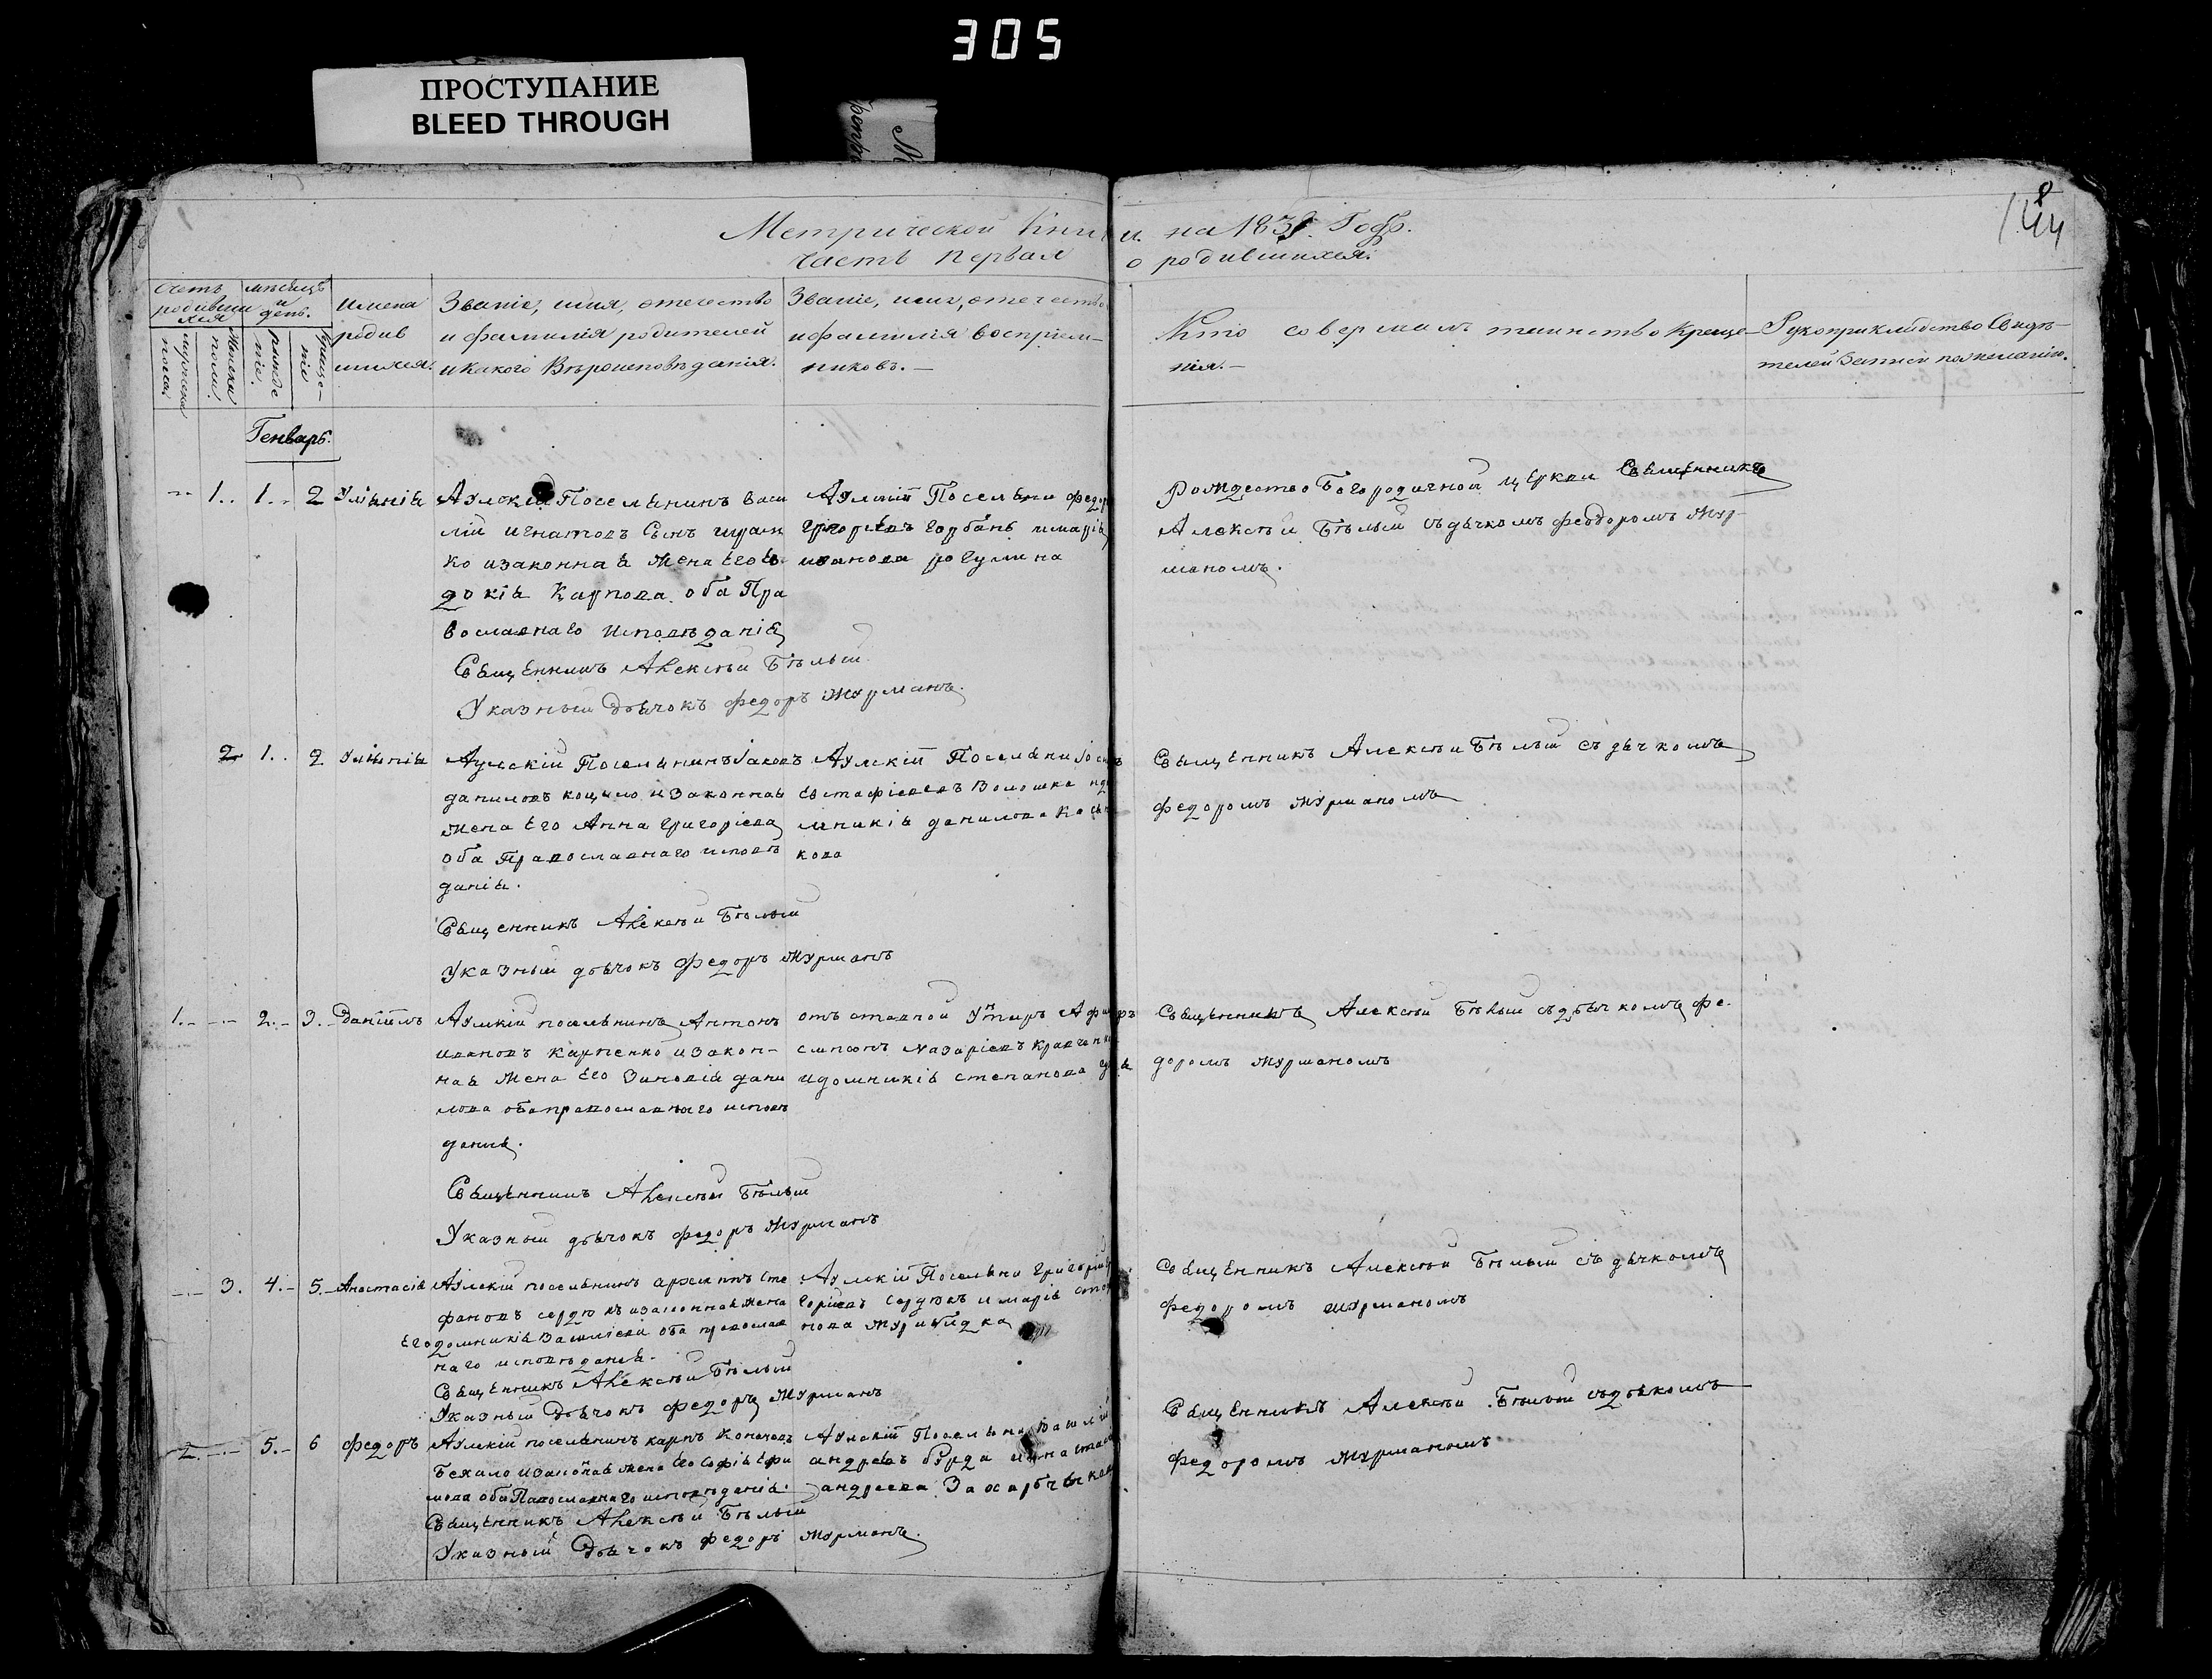 305
ПРОСТУПАНИЕ
BLEED THROUGH
144
Метрической книги на 183 Годъ.
часть первая о родившихся.
Счетъ родившихся
мѣсяцъ и день.
Имена родившихся.
Званіе, имя, отечество и фамилія родителей и какого Вѣроисповѣданія.
Званіе, имя, отечество и фамилія воспріемниковъ.
Кто совершалъ таинство Крещенія.
Рукоприкладство Свидѣтелей записи пожеланію.
мужеска пола
женска пола
рожденіе.
крещеніе
Генварь.
1. 1. 2 Уліянія
Поселянинъ Васи
лій Игнатовъ Сынъ
ко изаконная Жена его Ев
докія Карпова оба Пра
вославнаго Исповѣданія
Священникъ Алексѣй Бѣлый
Указный Дьячокъ Федоръ Журманъ.
Поселяни Федоръ
Григорьевъ Горбань и Марія
иванова рогулина
Рождество Богородичной церкви Священникъ
Алексѣй Бѣлый съ дьячкомъ Феодоромъ Жур-
маномъ.
2 1. 2 Уліянія
Поселянинъ Іаковъ
даниловъ коцило изаконная
Жена Его Анна Григоріева
оба Православнаго исповѣ
данія.
Священникъ Алексѣй Бѣлый
Указный дьячокъ Федоръ Журманъ
Поселяни
Евстафіевъ Волошко
данилова
кова
Священникъ Алексѣй Бѣлый съ дьячкомъ
Федоромъ Журманомъ
1. 2. 3. Даніилъ
поселянинъ Антонъ
ивановъ Карпенко изакон-
ная Жена Его Зиновія дани
лова оба православнаго исповѣ
данія.
Священникъ Алексѣй Бѣлый
Указный дьячокъ Федоръ Журманъ
отъ ставной
Назаріевъ
и домникія степанова
Священникъ Алексѣй Бѣлый съ дьячкомъ Фе-
доромъ Журманомъ
3. 4. 5. Анастасія
поселянинъ Сте
фановъ сердюкъ изаконная Жена
Его домникія Василіева оба православ
наго исповѣданія.
Священникъ Алексѣй Бѣлый
Указный Дьячокъ Федоръ Журманъ
Поселяни Григорій
Сердюкъ и марія
нова
Священникъ Алексѣй Бѣлый съ дьячкомъ
Федоромъ Журманомъ
2. 5. 6 Федоръ
поселянинъ карпъ
изаконная Жена Его Софія Ефи
мова оба Павославнаго исповѣданія.
Священникъ Алексѣй Бѣлый
Указный Дьячокъ Федоръ Журманъ.
Поселяни Василій
андреевъ
андреева
Священникъ Алексѣй Бѣлый съ дьякомъ
Федоромъ Журманомъ